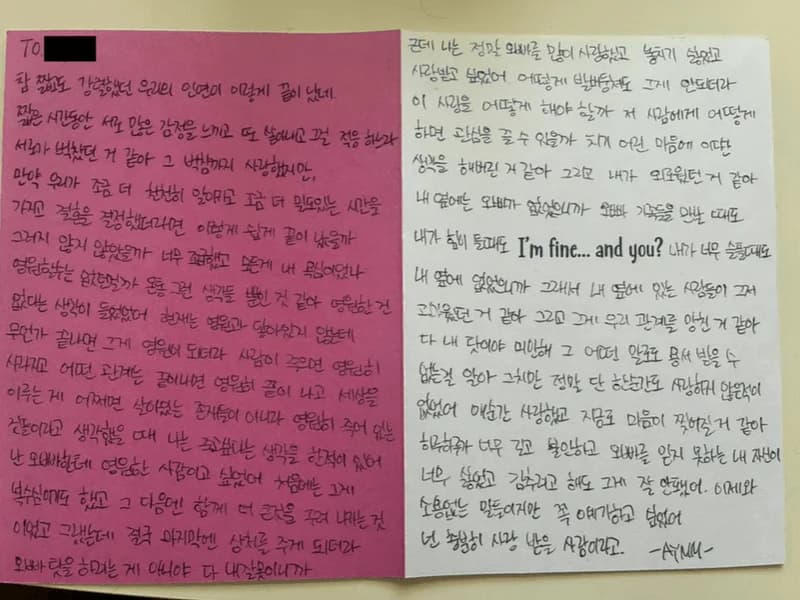 TO.
참 짧고도 강렬했던 우리의 인연이 이렇게 끝이 났네.
짧은 시간동안 서로 많은 감정을 느끼고 또 쏟아내고 그걸 적응하느라
서로가 벅찼던 거 같아 그 벅참까지 사랑했지만,
만약 우리가 조금 더 천천히 알아가고 조금 더 밀도있는 시간을
가지고 결혼을 결정했더라면 이렇게 쉽게 끝이 났을까
그러지 않지 않았을까 너무 조급했고 모든게 내 욕심이었나
영원할수는 없었던걸까 온통 그런 생각들 뿐인 것 같아 영원한 건
없다는 생각이 들었었어 현재는 영원과 닿아있지 않는데
무언가 끝나면 그게 영원이 되더라 사람이 죽으면 영원히
사라지고 어떤 관계는 끝이나면 영원히 끝이 나고 세상을
이루는 게 어쩌면 살아있는 존재들이 아니라 영원히 죽어 있는
것들이라고 생각했을 때 나는 죽고싶다는 생각을 한적이 있어
난 오빠한테 영원한 사람이고 싶었어 처음에는 그게
복수심이기도 했고 그 다음엔 함께 더 큰것을 꾸려 나가는 것
이었고 그랬는데 결국 마지막엔 상처를 주게 되더라
오빠 탓을 하려는 게 아니야 다 내잘못이니까
근데 나는 정말 오빠를 많이 사랑했고 놓치기 싫었고
사랑받고 싶었어 어떻게 발버둥쳐도 그게 안되더라
이 사랑을 어떻게 해야 할까 저 사람에게 어떻게
하면 관심을 끌 수 있을까 치기 어린 마음에 이딴
생각을 해버린 거 같아 그리고 내가 외로웠던 거 같아
내 옆에는 오빠가 없었으니까 오빠 가족들을 만날 때도
내가 힘이 들때도 I'm fine... and you? 내가 너무 슬플때도
내 옆에 없었으니까 그래서 내 옆에 있는 사람들이 그저
고마웠던 거 같아 그리고 그게 우리 관계를 망친 거 같아
다 내 탓이야 미안해 그 어떤 말로도 용서 빌을 수
없는걸 알아 그치만 정말 단 한순간도 사랑하지 않은적이
없었어 매순간 사랑했고 지금도 마음이 찢어질 거 같아
하루하루가 너무 길고 불안하고 오빠를 잊지 못하는 내 자신이
너무 싫었고 감추려고 해도 그게 잘 안됐어. 이제와
소용없는 말들이지만 꼭 얘기하고 싶었어
넌 충분히 사랑 받을 사람이라고. -AYNIL-